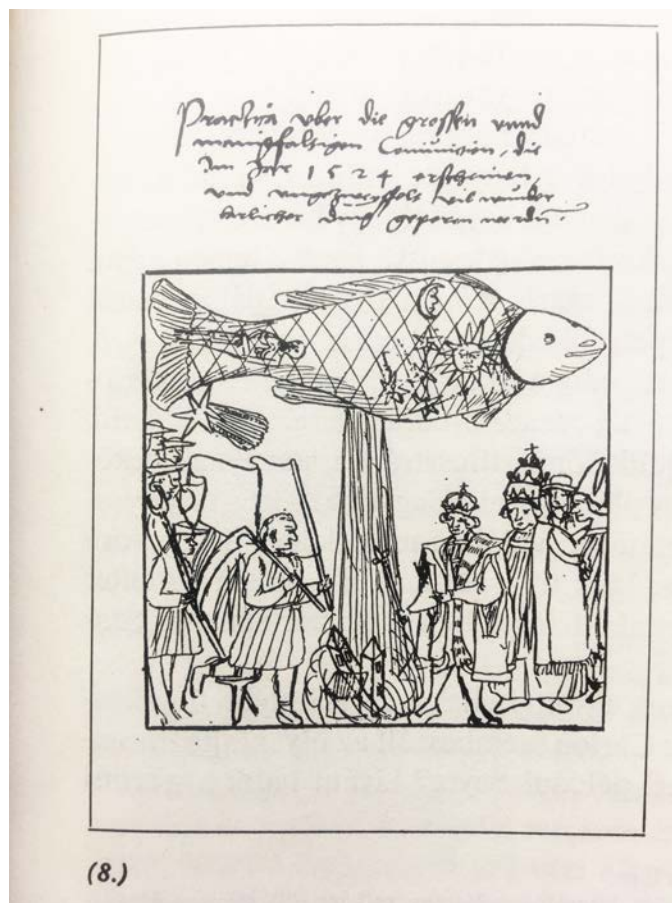 Practica vber die grossen vnnd
manigfaltigen Coniunction, die
Im Jar 1524 erscheinen,
vnd vngezweyffelt vil wunder
barlicher ding geperen werdn.
(8.)